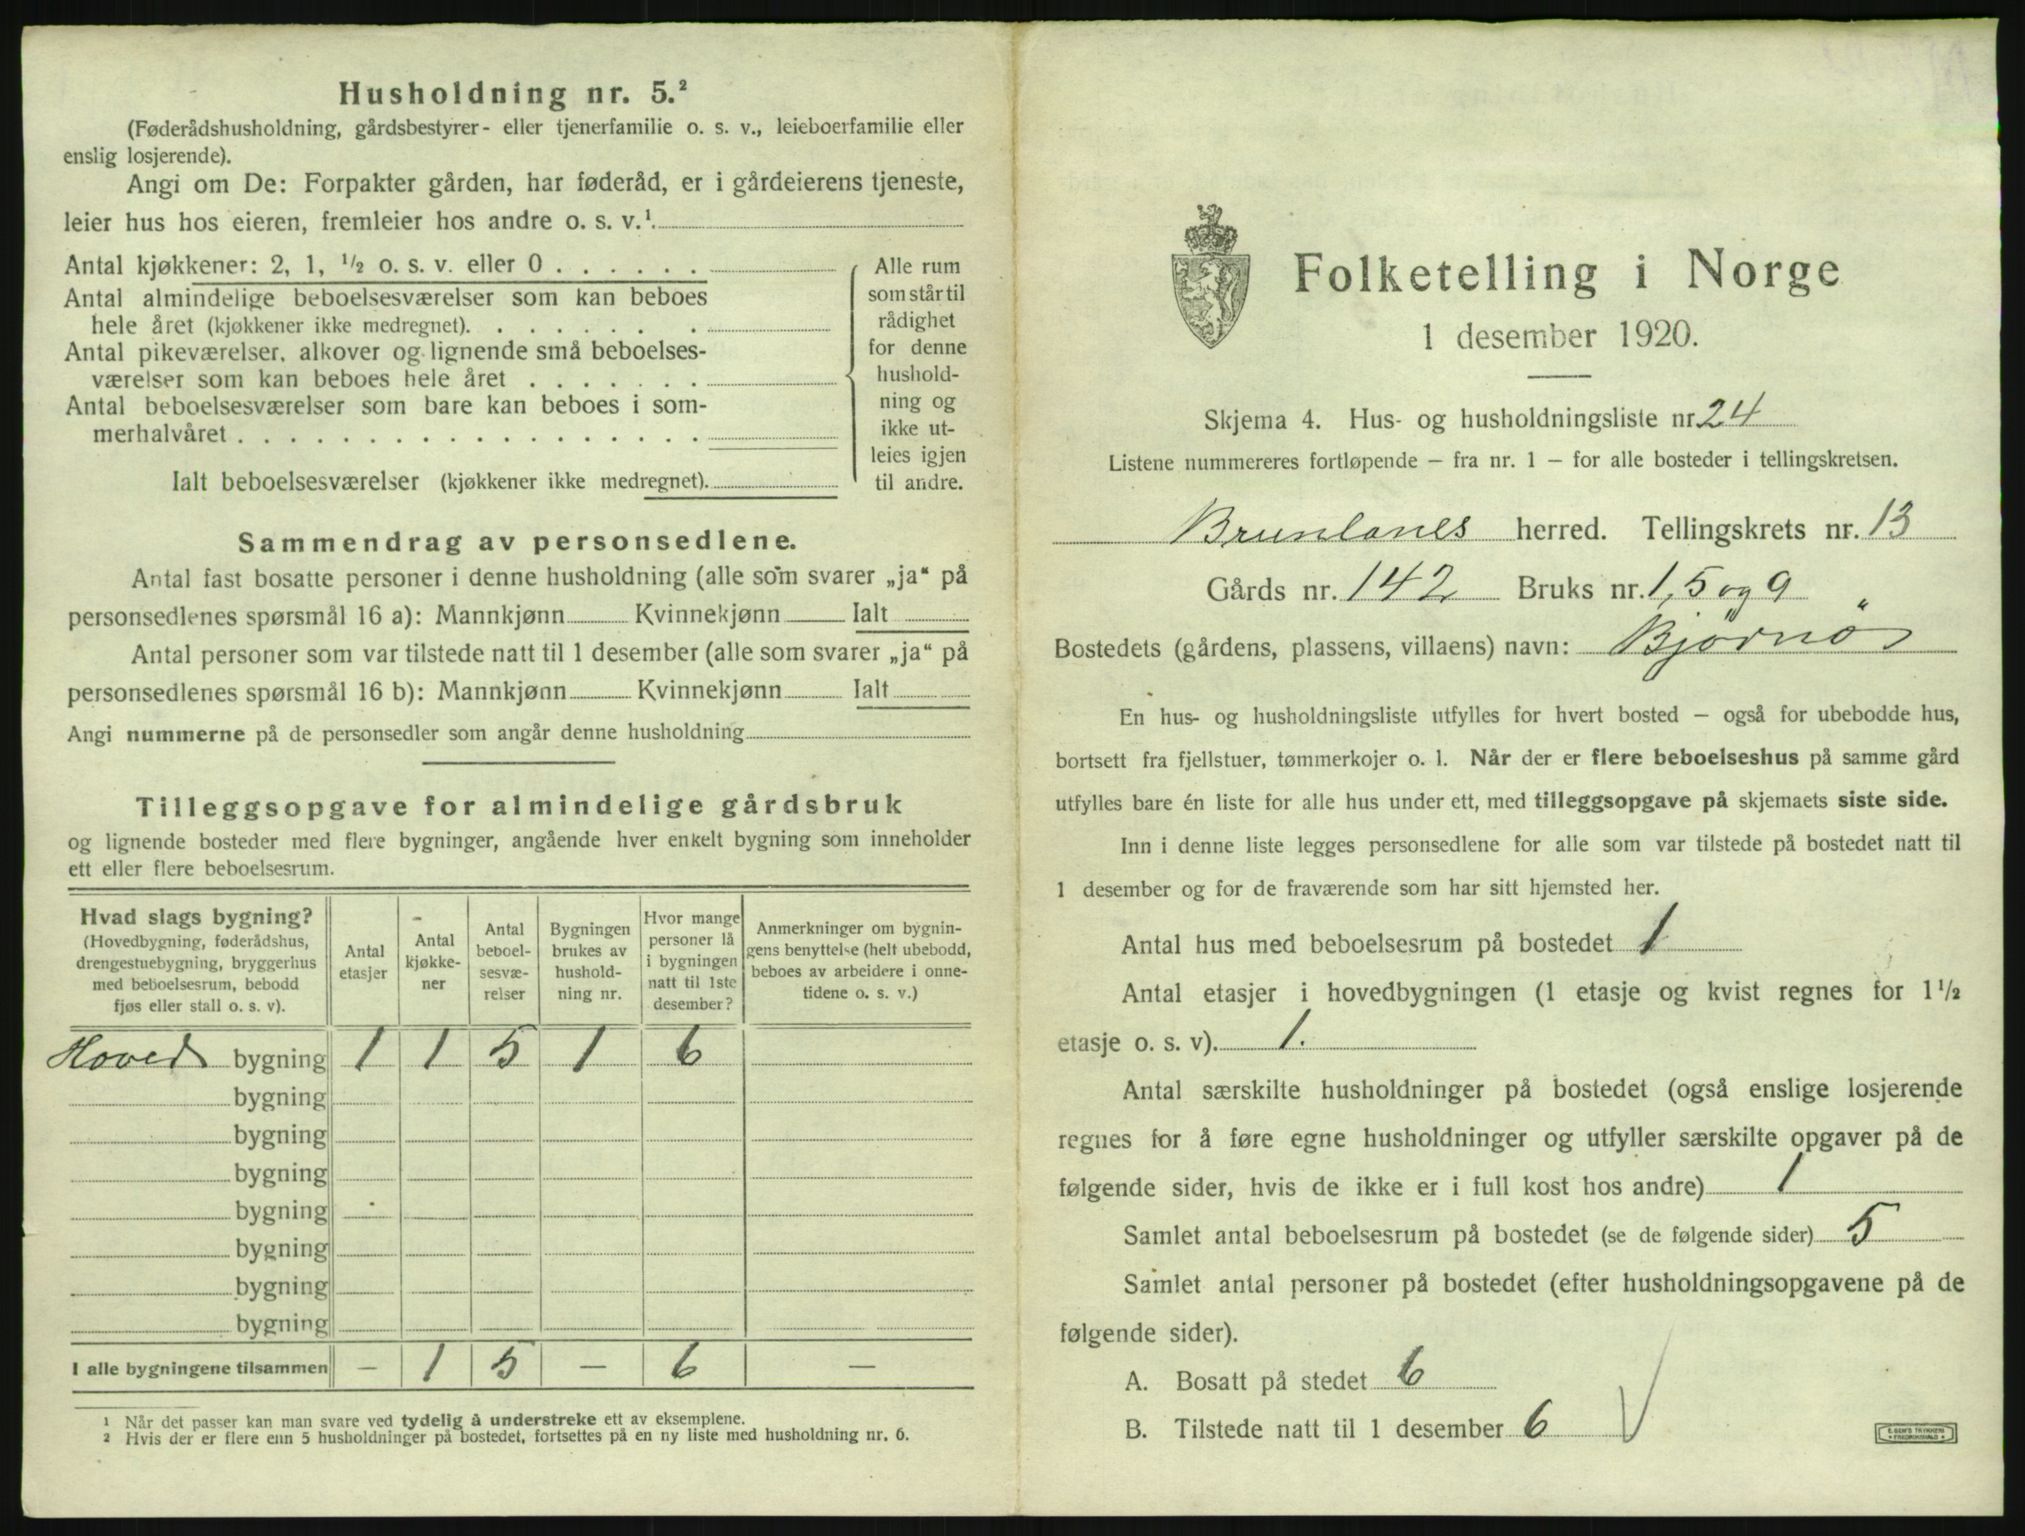 Husholdning nr. 5.²
(Føderådshusholdning, gårdsbestyrer- eller tjenerfamilie o. s. v., leieboerfamilie eller
enslig losjerende).
Angi om De: Forpakter gården, har føderåd, er i gårdeierens tjeneste,
leier hus hos eieren, fremleier hos andre o. s. v.¹
Antal kjøkkener: 2, 1, ½ o. s. v. eller 0 . . . . . .
Antal almindelige beboelsesværelser som kan beboes
hele året (kjøkkener ikke medregnet). . . . . . . .
Antal pikeværelser, alkover og lignende små beboelses-
værelser som kan beboes hele året . . . . . . .
Antal beboelsesværelser som bare kan beboes i som-
merhalvåret . . . . . . . . . . . . . . . . . .
Ialt beboelsesværelser (kjøkkener ikke medregnet).
Alle rum
som står til
rådighet
for denne
hushold-
ning og
ikke ut-
leies igjen
til andre.
Sammendrag av personsedlene.
Antal fast bosatte personer i denne husholdning (alle som svarer „ja“ på
personsedlenes spørsmål 16 a): Mannkjønn Kvinnekjønn Ialt
Antal personer som var tilstede natt til 1 desember (alle som svarer „ja“ på
personsedlenes spørsmål 16 b): Mannkjønn Kvinnekjønn Ialt
Angi nummerne på de personsedler som angår denne husholdning
Tilleggsopgave for almindelige gårdsbruk
og lignende bosteder med flere bygninger, angående hver enkelt bygning som inneholder
ett eller flere beboelsesrum.
Hvad slags bygning?
(Hovedbygning, føderådshus,
drengestuebygning, bryggerhus
med beboelsesrum, bebodd
fjøs eller stall o. s. v).
Antal
etasjer
Antal
kjøkke-
ner
Antal
beboel-
sesvæ-
relser
Bygningen
brukes av
hushold-
ning nr.
Hvor mange
personer lå
i bygningen
natt til 1ste
desember?
Anmerkninger om bygnin-
gens benyttelse (helt ubebodd,
beboes av arbeidere i onne-
tidene o. s. v.)
Hoved bygning 1 1 5 1 6
bygning
bygning
bygning
bygning
bygning
bygning
bygning
I alle bygningene tilsammen — 1 5 — 6 —
¹ Når det passer kan man svare ved tydelig å understreke ett av eksemplene.
² Hvis der er flere enn 5 husholdninger på bostedet, fortsettes på en ny liste med husholdning nr. 6.
Folketelling i Norge
1 desember 1920.
Skjema 4. Hus- og husholdningsliste nr. 24
Listene nummereres fortløpende – fra nr. 1 – for alle bosteder i tellingskretsen.
Brunlanes herred. Tellingskrets nr. 13
Gårds nr. 142 Bruks nr. 1, 5 og 9
Bostedets (gårdens, plassens, villaens) navn: Bjørnø
En hus- og husholdningsliste utfylles for hvert bosted – også for ubebodde hus,
bortsett fra fjellstuer, tømmerkojer o. l. Når der er flere beboelseshus på samme gård
utfylles bare én liste for alle hus under ett, med tilleggsopgave på skjemaets siste side.
Inn i denne liste legges personsedlene for alle som var tilstede på bostedet natt til
1 desember og for de fraværende som har sitt hjemsted her.
Antal hus med beboelsesrum på bostedet 1
Antal etasjer i hovedbygningen (1 etasje og kvist regnes for 1½
etasje o. s. v). 1.
Antal særskilte husholdninger på bostedet (også enslige losjerende
regnes for å føre egne husholdninger og utfyller særskilte opgaver på de
følgende sider, hvis de ikke er i full kost hos andre) 1
Samlet antal beboelsesrum på bostedet (se de følgende sider) 5
Samlet antal personer på bostedet (efter husholdningsopgavene på de
følgende sider).
A. Bosatt på stedet 6
B. Tilstede natt til 1 desember 6